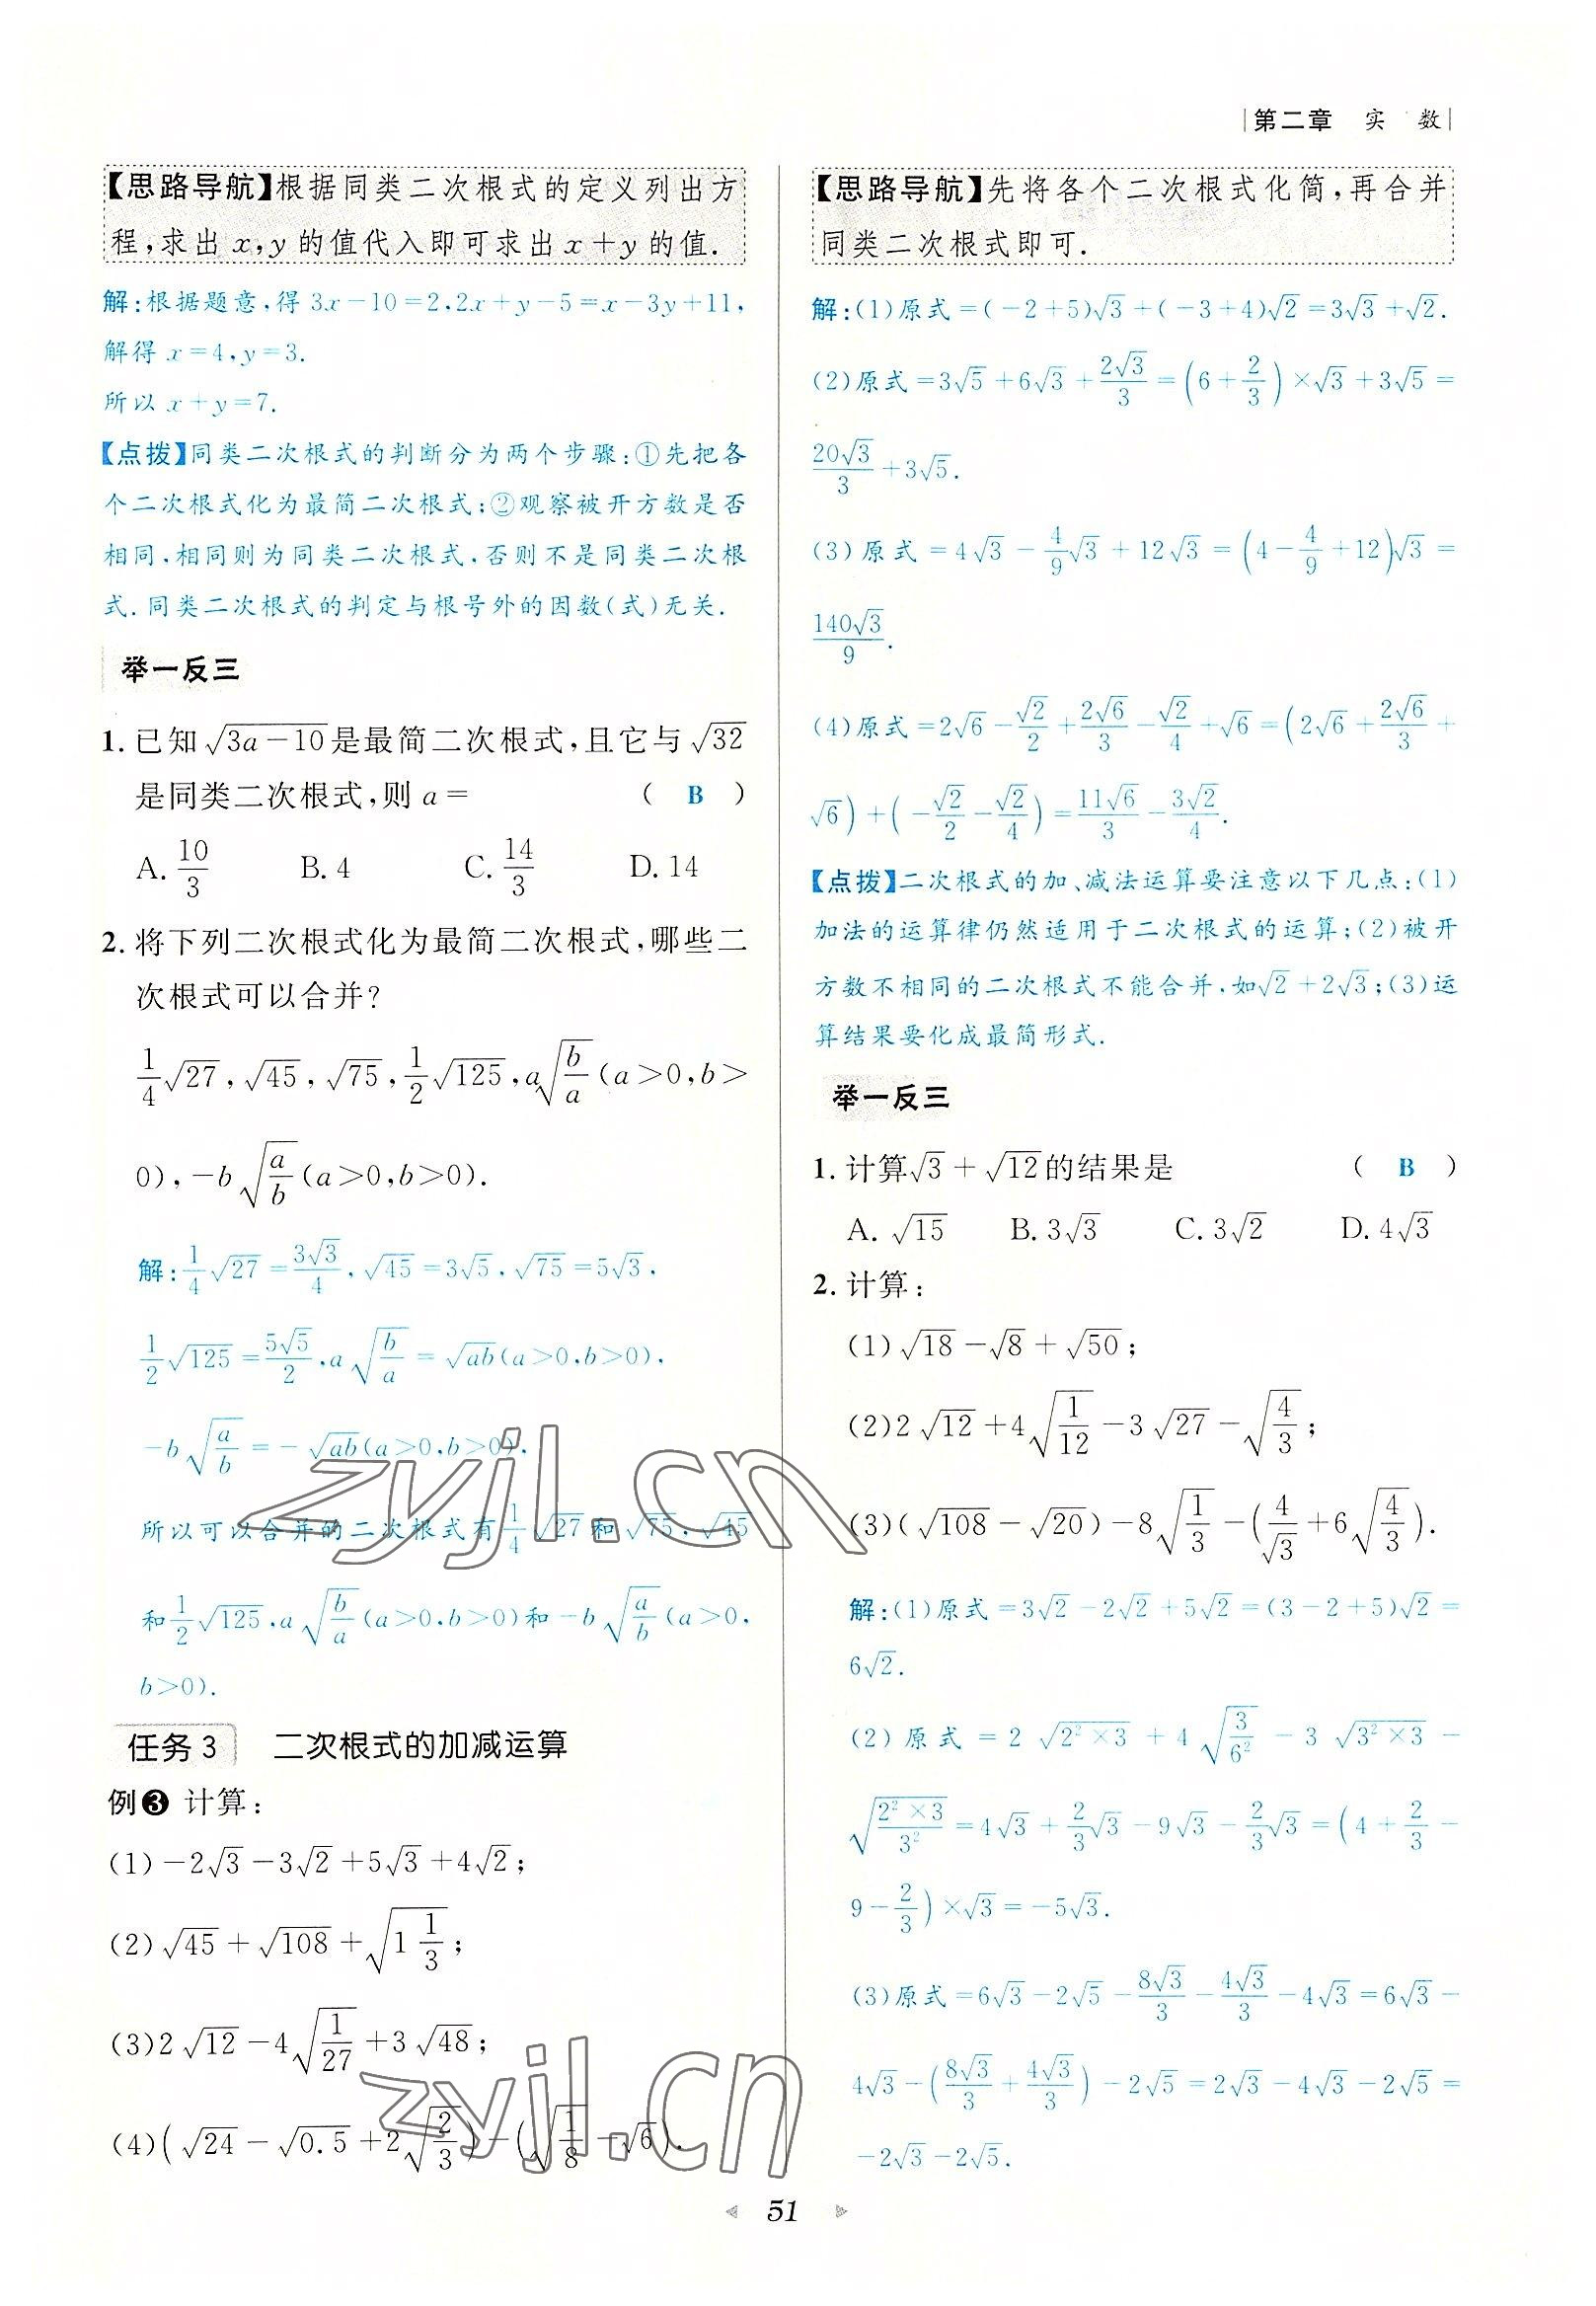 第二章 实 数
【思路导航】根据同类二次根式的定义列出方
程,求出 x,y 的值代入即可求出 x+y 的值.
解:根据题意,得 3x-10=2,2x+y-5=x-3y+11,
解得 x=4,y=3.
所以 x+y=7.
【点拨】同类二次根式的判断分为两个步骤:①先把各
个二次根式化为最简二次根式;②观察被开方数是否
相同,相同则为同类二次根式,否则不是同类二次根
式.同类二次根式的判定与根号外的因数(式)无关.
举一反三
1. 已知 √(3a-10) 是最简二次根式,且它与 √32
是同类二次根式,则 a= ( B )
A. 10/3 B. 4 C. 14/3 D. 14
2. 将下列二次根式化为最简二次根式,哪些二
次根式可以合并?
1/4√27,√45,√75,1/2√125,a√(b/a)(a>0,b>
0),-b√(a/b)(a>0,b>0).
解:1/4√27=3√3/4,√45=3√5,√75=5√3,
1/2√125=5√5/2,a√(b/a)=√ab(a>0,b>0),
-b√(a/b)=-√ab(a>0,b>0),
所以可以合并的二次根式有1/4√27和√75,√45
和1/2√125,a√(b/a)(a>0,b>0)和-b√(a/b)(a>0,
b>0).
任务 3 二次根式的加减运算
例❸ 计算:
(1)-2√3-3√2+5√3+4√2;
(2)√45+√108+√(1 1/3);
(3)2√12-4√(1/27)+3√48;
(4)(√24-√0.5+2√(2/3))-(√(1/8)-√6).
【思路导航】先将各个二次根式化简,再合并
同类二次根式即可.
解:(1)原式=(-2+5)√3+(-3+4)√2=3√3+√2.
(2)原式=3√5+6√3+2√3/3=(6+2/3)×√3+3√5=
20√3/3+3√5.
(3)原式=4√3-4/9√3+12√3=(4-4/9+12)√3=
140√3/9.
(4)原式=2√6-√2/2+2√6/3-√2/4+√6=(2√6+2√6/3+
√6)+(-√2/2-√2/4)=11√6/3-3√2/4.
【点拨】二次根式的加、减法运算要注意以下几点:(1)
加法的运算律仍然适用于二次根式的运算;(2)被开
方数不相同的二次根式不能合并,如√2+2√3;(3)运
算结果要化成最简形式.
举一反三
1. 计算√3+√12的结果是 ( B )
A. √15 B. 3√3 C. 3√2 D. 4√3
2. 计算:
(1)√18-√8+√50;
(2)2√12+4√(1/12)-3√27-√(4/3);
(3)(√108-√20)-8√(1/3)-(4/√3+6√(4/3)).
解:(1)原式=3√2-2√2+5√2=(3-2+5)√2=
6√2.
(2)原式=2√(2²×3)+4√(3/6²)-3√(3²×3)-
√(2²×3/3²)=4√3+2/3√3-9√3-2/3√3=(4+2/3-
9-2/3)×√3=-5√3.
(3)原式=6√3-2√5-8√3/3-4√3/3-4√3=6√3-
4√3-(8√3/3+4√3/3)-2√5=2√3-4√3-2√5=
-2√3-2√5.
51
zyjl.cn
zyjl.cn